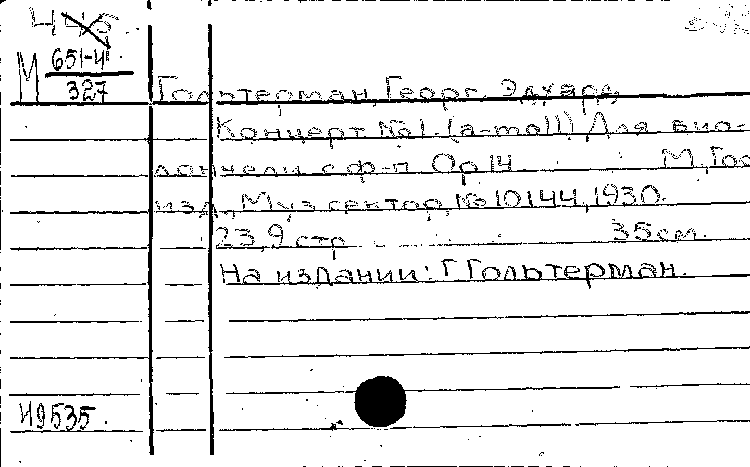 М 651-4
327
Гольтерман, Георг Эдуард
Концерт №1. (a-moll) Для вио-
лончели с ф-п. Op 14 М, Гос
изд., Муз сектор, № 10144, 1930.
23,9 стр 35 см.
На издании: Г. Гольтерман.
И9535.